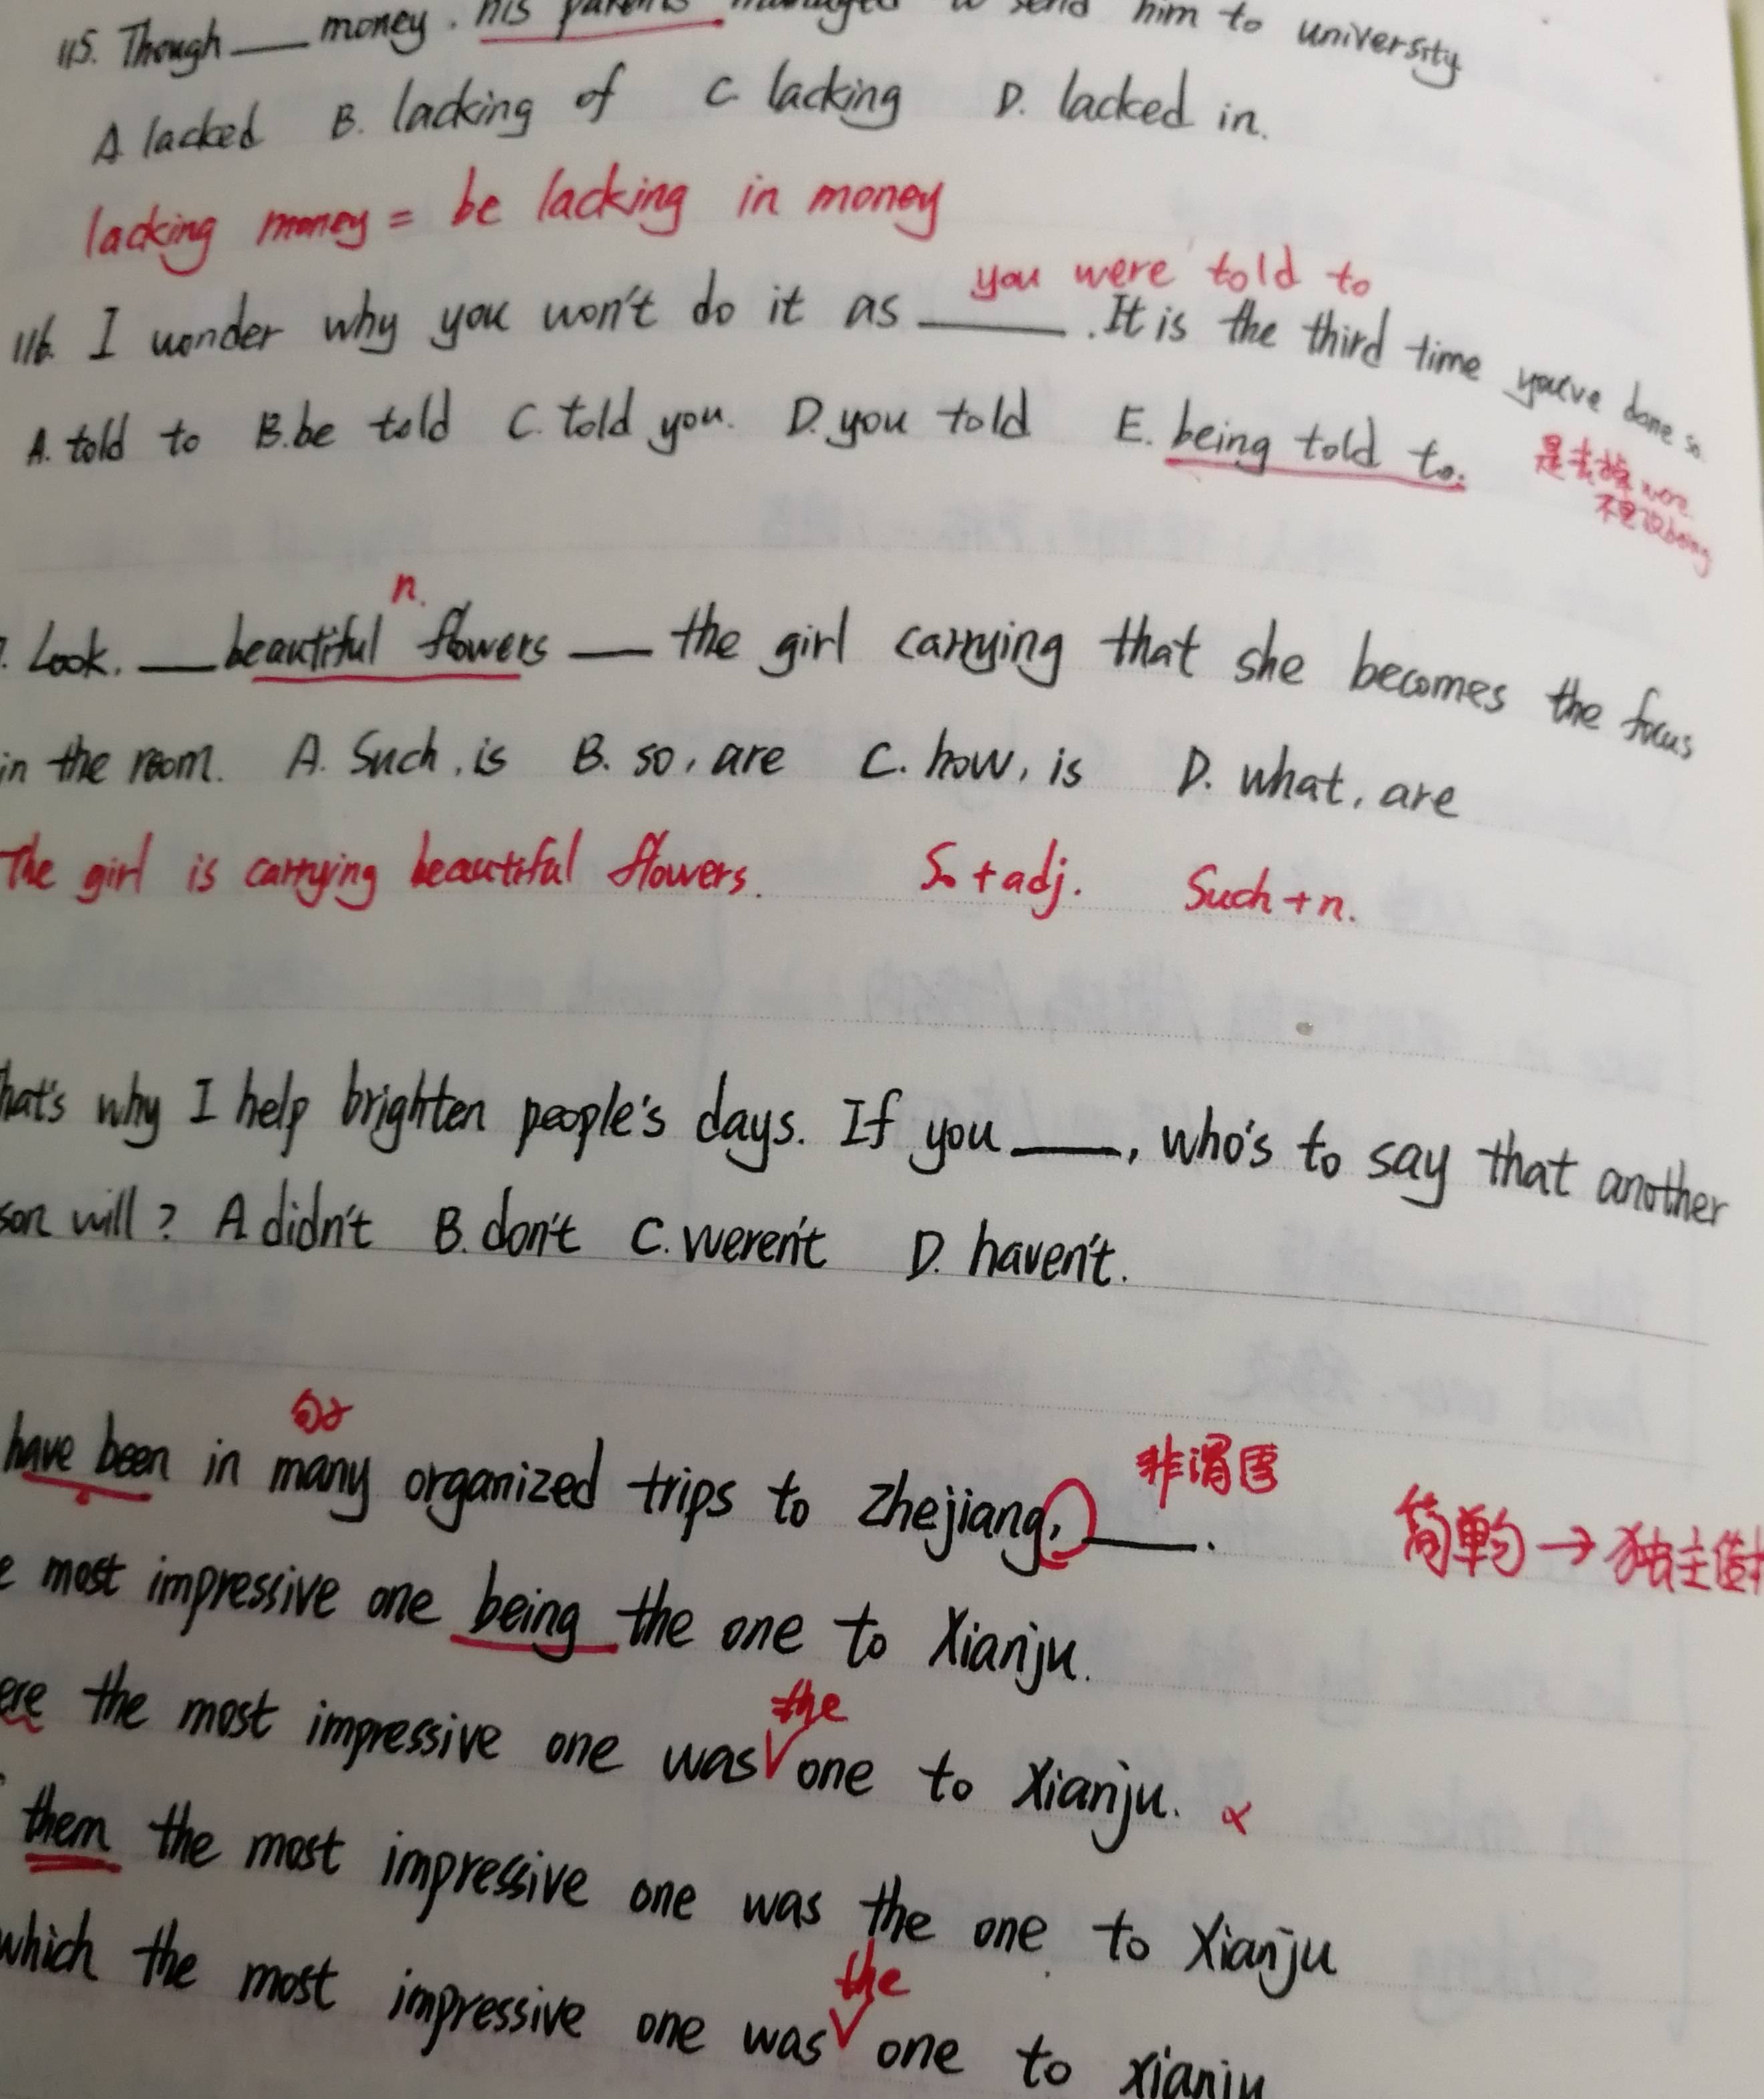 115. Though ____ money, his parents managed to send him to university
A lacked B. lacking of C. lacking D. lacked in.
lacking money = be lacking in money
you were told to
116. I wonder why you won't do it as ____. It is the third time you've done so.
A. told to B. be told C. told you. D. you told E. being told to.
是去掉were
不是改being
n.
Look. ____ beautiful flowers ____ the girl carrying that she becomes the focus
in the room. A. Such, is B. so, are C. how, is D. what, are
The girl is carrying beautiful flowers. So + adj. Such + n.
hat's why I help brighten people's days. If you ____, who's to say that another
son will? A didn't B. don't C. weren't D. haven't.
句子
have been in many organized trips to Zhejiang, ____.
非谓语
简单句 → 独主
e most impressive one being the one to Xianju.
the
ere the most impressive one was one to Xianju. ×
them the most impressive one was the one to Xianju
the
which the most impressive one was one to xianju